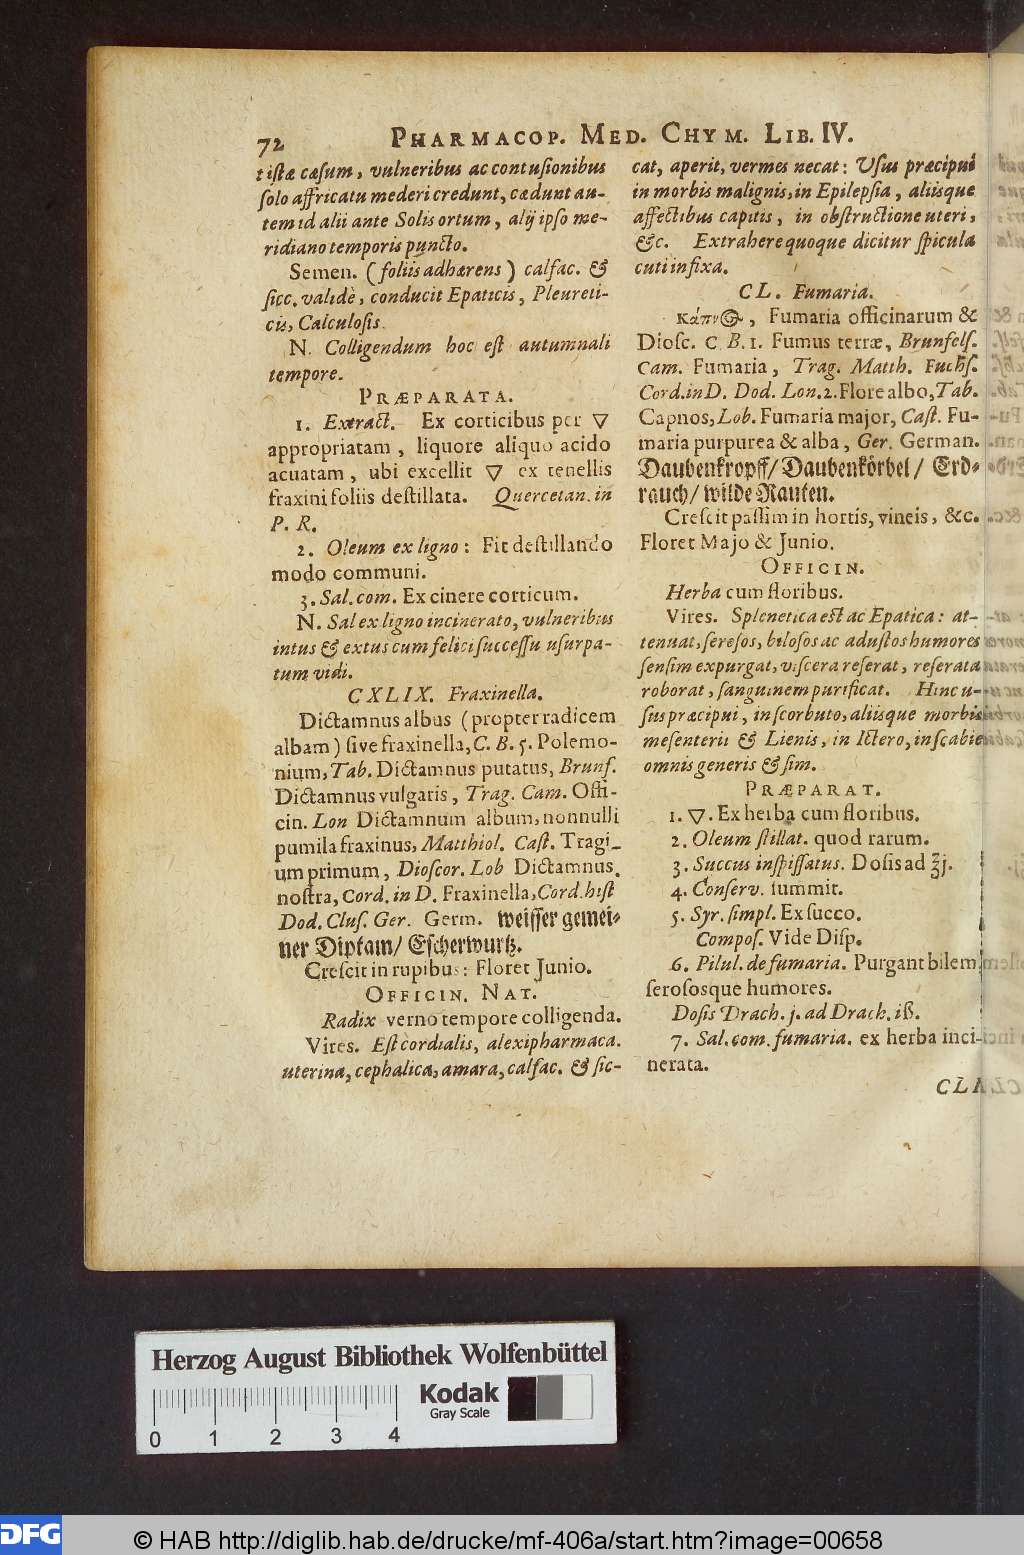 72 PHARMACOP. MED. CHYM. LIB. IV.
tistæ cæsum, vulneribus ac contusionibus
solo affricatu mederi credunt, cædunt au-
tem id alii ante Solis ortum, alij ipso me-
ridiano temporis puncto.
Semen. (foliis adhærens) calfac. &
sicc. validè, conducit Epaticis, Pleureti-
cis, Calculosis.
N. Colligendum hoc est autumnali
tempore.
PRÆPARATA.
1. Extract. Ex corticibus per 🜄
appropriatam, liquore aliquo acido
acuatam, ubi excellit 🜄 ex tenellis
fraxini foliis destillata. Quercetan. in
P. R.
2. Oleum ex ligno: Fit destillando
modo communi.
3. Sal. com. Ex cinere corticum.
N. Sal ex ligno incinerato, vulneribus
intus & extus cum felici successu usurpa-
tum vidi.
CXLIX. Fraxinella.
Dictamnus albus (propter radicem
albam) sive fraxinella, C. B. 5. Polemo-
nium, Tab. Dictamnus putatus, Brunf.
Dictamnus vulgaris, Trag. Cam. Offi-
cin. Lon Dictamnum album, nonnulli
pumila fraxinus, Matthiol. Cast. Tragi-
um primum, Dioscor. Lob Dictamnus.
nostra, Cord. in D. Fraxinella, Cord. hist
Dod. Clus. Ger. Germ. weisser gemei-
ner Diptam/ Escherwurtz.
Crescit in rupibus: Floret Junio.
OFFICIN. NAT.
Radix verno tempore colligenda.
Vires. Est cordialis, alexipharmaca.
uterina, cephalica, amara, calfac. & sic-
cat, aperit, vermes necat: Usus præcipui
in morbis malignis, in Epilepsia, aliisque
affectibus capitis, in obstructione uteri,
&c. Extrahere quoque dicitur spicula
cuti infixa.
CL. Fumaria.
κάπν𝔊, Fumaria officinarum &
Diosc. C. B. 1. Fumus terræ, Brunfels.
Cam. Fumaria, Trag. Matth. Fuchs.
Cord. in D. Dod. Lon. 2. Flore albo, Tab.
Capnos, Lob. Fumaria major, Cast. Fu-
maria purpurea & alba, Ger. German.
Daubenkropff/ Daubenkörbel/ Erd-
rauch/ wilde Rauten.
Crescit passim in hortis, vineis, &c.
Floret Majo & Junio.
OFFICIN.
Herba cum floribus.
Vires. Splenetica est ac Epatica: at-
tenuat, serosos, bilosos ac adustos humores
sensim expurgat, viscera reserat, reserata
roborat, sanguinem purificat. Hinc u-
sus præcipui, in scorbuto, aliisque morbis
mesenterii & Lienis, in Ictero, in scabie
omnis generis & sim.
PRÆPARAT.
1. 🜄. Ex herba cum floribus.
2. Oleum stillat. quod rarum.
3. Succus inspissatus. Dosis ad ʒj.
4. Conserv. summit.
5. Syr. simpl. Ex succo.
Compos. Vide Disp.
6. Pilul. de fumaria. Purgant bilem,
serososque humores.
Dosis Drach. j. ad Drach. iß.
7. Sal. com. fumaria. ex herba inci-
nerata.
CLA
Herzog August Bibliothek Wolfenbüttel
0 1 2 3 4
Kodak
Gray Scale
DFG
© HAB http://diglib.hab.de/drucke/mf-406a/start.htm?image=00658